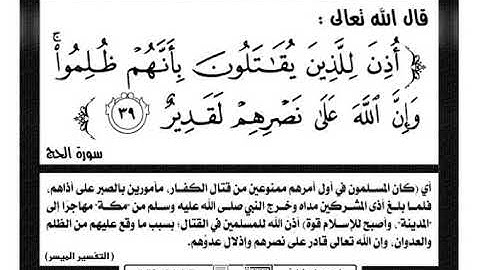 قال الله تعالى :
﴿ أُذِنَ لِلَّذِينَ يُقَٰتَلُونَ بِأَنَّهُمْ ظُلِمُوا۟ ۚ
وَإِنَّ ٱللَّهَ عَلَىٰ نَصْرِهِمْ لَقَدِيرٌ ٣٩ ﴾
سورة الحج
أي (كان المسلمون في أول أمرهم ممنوعين من قتال الكفار، مأمورين بالصبر على أذاهم،
فلما بلغ أذى المشركين مداه وخرج النبي صلى الله عليه وسلم من "مكة" مهاجرًا إلى
"المدينة"، وأصبح للإسلام قوة) أذن الله للمسلمين في القتال؛ بسبب ما وقع عليهم من الظلم
والعدوان، وإن الله تعالى قادر على نصرهم وإذلال عدوِّهم.
(التفسير الميسر)